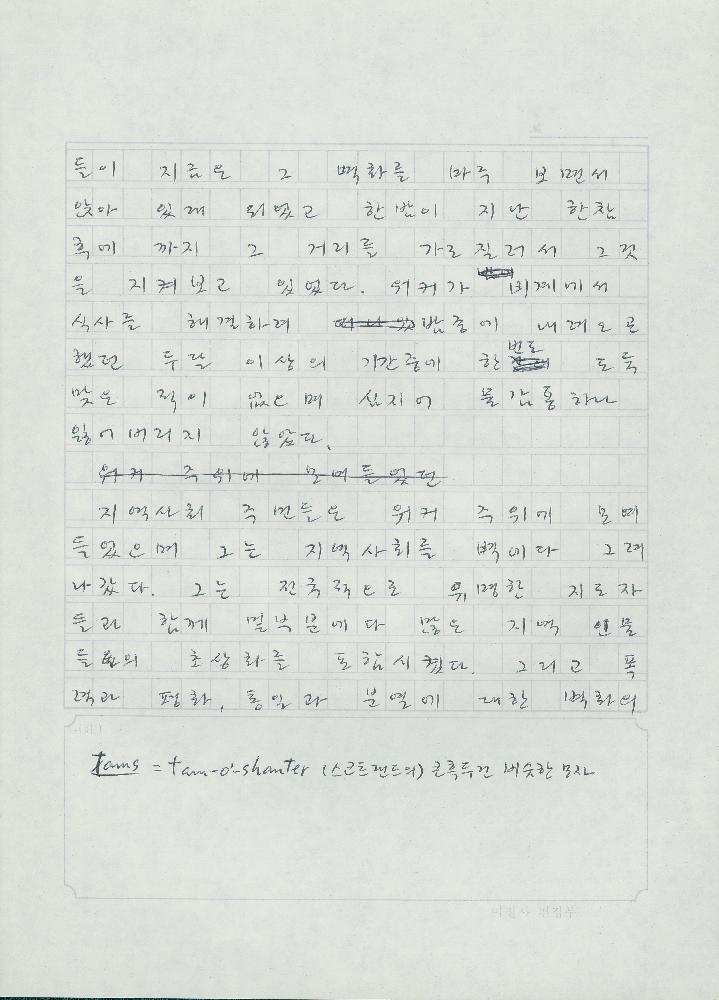 들이 지금은 그 벽화를 마주 보면서
앉아 있게 되었고 한밤이 지난 한참
후에 까지 그 거리를 가로질러서 그것
을 지켜보고 있었다. 워커가 비계에서
식사를 해결하려 밤중에 내려오곤
했던 두달 이상의 기간중에 한번도 도둑
맞은 적이 없으며 심지어 물감통 하나
잃어버리지 않았다.
워커 주위에 모여들었던
지역사회 주민들은 워커 주위에 모여
들었으며 그는 지역사회를 벽에다 그려
나갔다. 그는 전국적으로 유명한 지도자
들과 함께 밑부분에다 많은 지역 인물
들의 초상화를 포함시켰다. 그리고 폭
력과 평화, 통일과 분열에 대한 벽화의
tams = tam-o'-shanter (스코트랜드의) 큰 흑두건 비슷한 모자
편집부